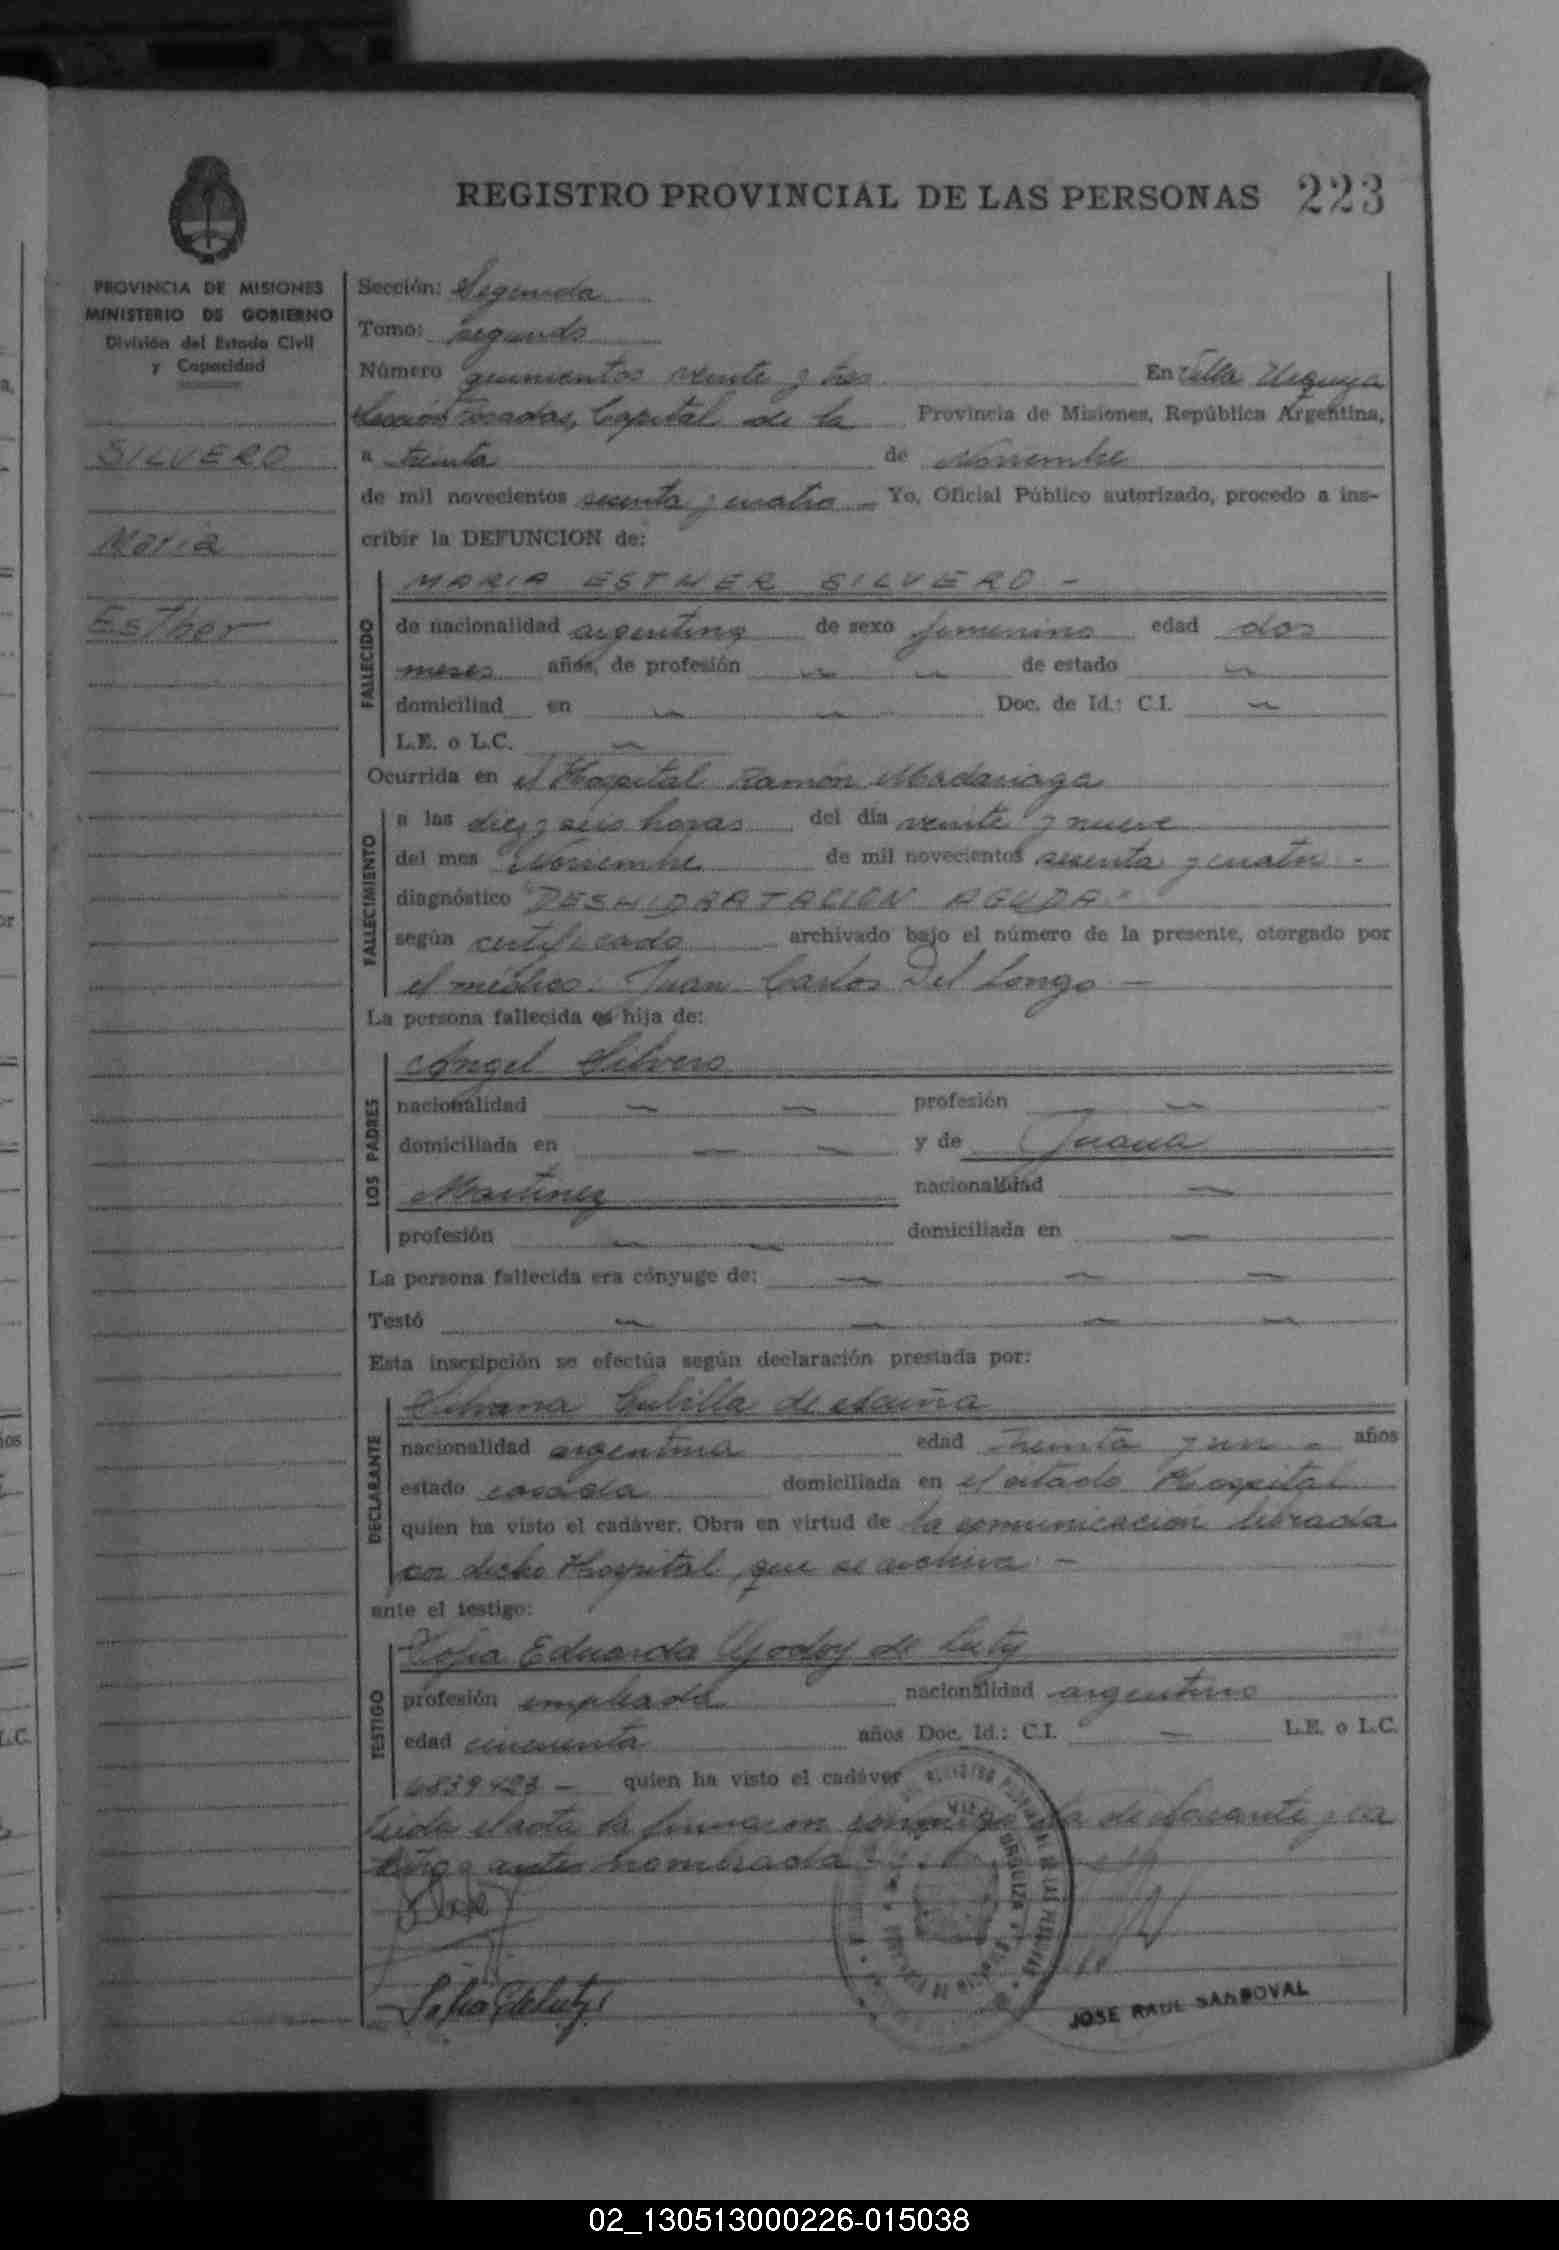 REGISTRO PROVINCIAL DE LAS PERSONAS 223
PROVINCIA DE MISIONES
MINISTERIO DE GOBIERNO
División del Estado Civil
y Capacidad
SILVERO
Maria
Esther
Sección: Segunda
Tomo: segundo
Número quinientos veinte y tres En Villa Urquiza
Sección Posadas, Capital de la Provincia de Misiones, República Argentina,
a treinta de Noviembre
de mil novecientos sesenta y cuatro - Yo, Oficial Público autorizado, procedo a ins-
cribir la DEFUNCION de:
FALLECIDO
MARIA ESTHER SILVERO -
de nacionalidad argentina de sexo femenino edad dos
meses años, de profesión de estado
domiciliad en Doc. de Id.: C.I.
L.E. o L.C.
Ocurrida en el Hospital Ramón Madariaga
FALLECIMIENTO
a las diez y seis horas del día veinte y nueve
del mes Noviembre de mil novecientos sesenta y cuatro -
diagnóstico "DESHIDRATACION AGUDA"
según certificado archivado bajo el número de la presente, otorgado por
el médico: Juan Carlos Del Longo -
La persona fallecida es hija de:
LOS PADRES
Angel Silvero
nacionalidad profesión
domiciliada en y de Juana
Martinez nacionalidad
profesión domiciliada en
La persona fallecida era cónyuge de:
Testó
Esta inscripción se efectúa según declaración prestada por:
DECLARANTE
Silvana Cubilla de Acuña
nacionalidad argentina edad treinta y un - años
estado casada domiciliada en el citado Hospital
quien ha visto el cadáver. Obra en virtud de la comunicación librada
por dicho Hospital, que se archiva. -
ante el testigo:
TESTIGO
Sofia Eduarda Godoy de Luty
profesión empleada nacionalidad argentina
edad cincuenta años Doc. Id.: C.I. - L.E. o L.C.
6839423 - quien ha visto el cadáver
Leida el acta la firmaron conmigo la declarante y la
testigo antes nombrada
Sofia G de Luty
JOSE RAUL SANDOVAL
02_130513000226-015038